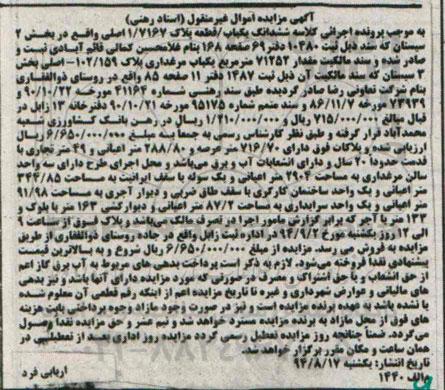 آگهی مزایده اموال غیرمنقول (اسناد رهنی)
به موجب پرونده اجرائی کلاسه ششدانگ یکباب /قطعه پلاک ۱/۷۱۶۷ اصلی واقع در بخش ۲
سیستان که سند ذیل ثبت ۱۰۴۸۰ دفتر ۶۹ صفحه ۱۶۸ بنام غلامحسین کمالی قائم آبادی ثبت و
صادر شده و سند مالکیت مقدار ۷۱۲۵۲ مترمربع یکباب مرغداری پلاک ۱۰۲/۱۵۹- اصلی بخش
۲ سیستان که سند مالکیت آن ذیل ثبت ۱۴۸۷ دفتر ۱۱ صفحه ۸۵ واقع در روستای ذوالفقاری
بنام شرکت تعاونی رضا صادر گردیده طبق سند رهنی شماره ۴۱۱۶۳ مورخه ۹۰/۱۰/۲۲ و
۷۳۹۳۹ مورخه ۸۶/۱۱/۷ و سند متمم شماره ۹۵۱۷۵ مورخه ۹۰/۱۰/۲۱ دفترخانه ۱۳ زابل در
قبال مبالغ ۷۱۵/۰۰۰/۰۰۰ ریال و ۱/۲۱۰/۰۰۰/۰۰۰ ریال در رهن بانک کشاورزی شعبه
محمدآباد قرار گرفته و طبق نظر کارشناس رسمی به جمعا به مبلغ ۶/۶۵۰/۰۰۰/۰۰۰ ریال
ارزیابی شده و پلاکات فوق دارای ۷۱۶/۷۰ متر عرصه و ۲۸۸/۸۰ متر اعیانی و ۴۹ متر تجاری با
قدمت حدودا ۲۰ سال و دارای انشعابات آب و برق می‌باشد و محل اجرای طرح دارای سه واحد
سالن مرغداری به مساحت ۲۹۰۴ متر اعیانی و یک سوله با سقف ایرانیت به مساحت ۳۴۴/۸۵
متر اعیانی و یک واحد ساختمان کارگری با سقف طاق ضربی و دیوار آجری به مساحت ۹۱/۹۸
متر اعیانی و یک واحد سرایداری به مساحت ۸۷/۲ متر اعیانی و دیوارکشی ۱۶۳ متر با بلوک و
۱۳۳ متر با آجر که برابر گزارش مامور اجرا در تصرف مالک می‌باشد و پلاک فوق از ساعت ۹
الی ۱۲ روز یکشنبه مورخ ۹۴/۹/۲ در اداره ثبت زابل واقع در جاده روستای ذوالفقاری از طریق
مزایده به فروش می رسد. مزایده از مبلغ ۶/۶۵۰/۰۰۰/۰۰۰ ریال شروع و به بالاترین قیمت
پیشنهادی نقدا فروخته می‌شود. لازم به ذکر است پرداخت بدهی های مربوط به آب برق گاز اعم
از حق انشعاب و یا حق اشتراک و مصرف در صورتی که مورد مزایده دارای آنها باشد و نیز بدهی
های مالیاتی و عوارض شهرداری و غیره تا تاریخ مزایده اعم از اینکه رقم قطعی آن معلوم شده
یا نشده باشد به عهده برنده مزایده است و نیز در صورت وجود مازاد وجوه پرداختی بابت هزینه
های فوق از محل مازاد به برنده مزایده مسترد خواهد شد و نیم عشر و حق مزایده نقدا وصول
می‌گردد. ضمناً چنانچه روز مزایده تعطیل رسمی گردد مزایده روز اداری بعد از تعطیلی در
همان ساعت و مکان مقرر برگزار خواهد شد.
تاریخ انتشار: یکشنبه ۹۴/۸/۱۷
م الف ۱۴۴۰
اربابی فرد